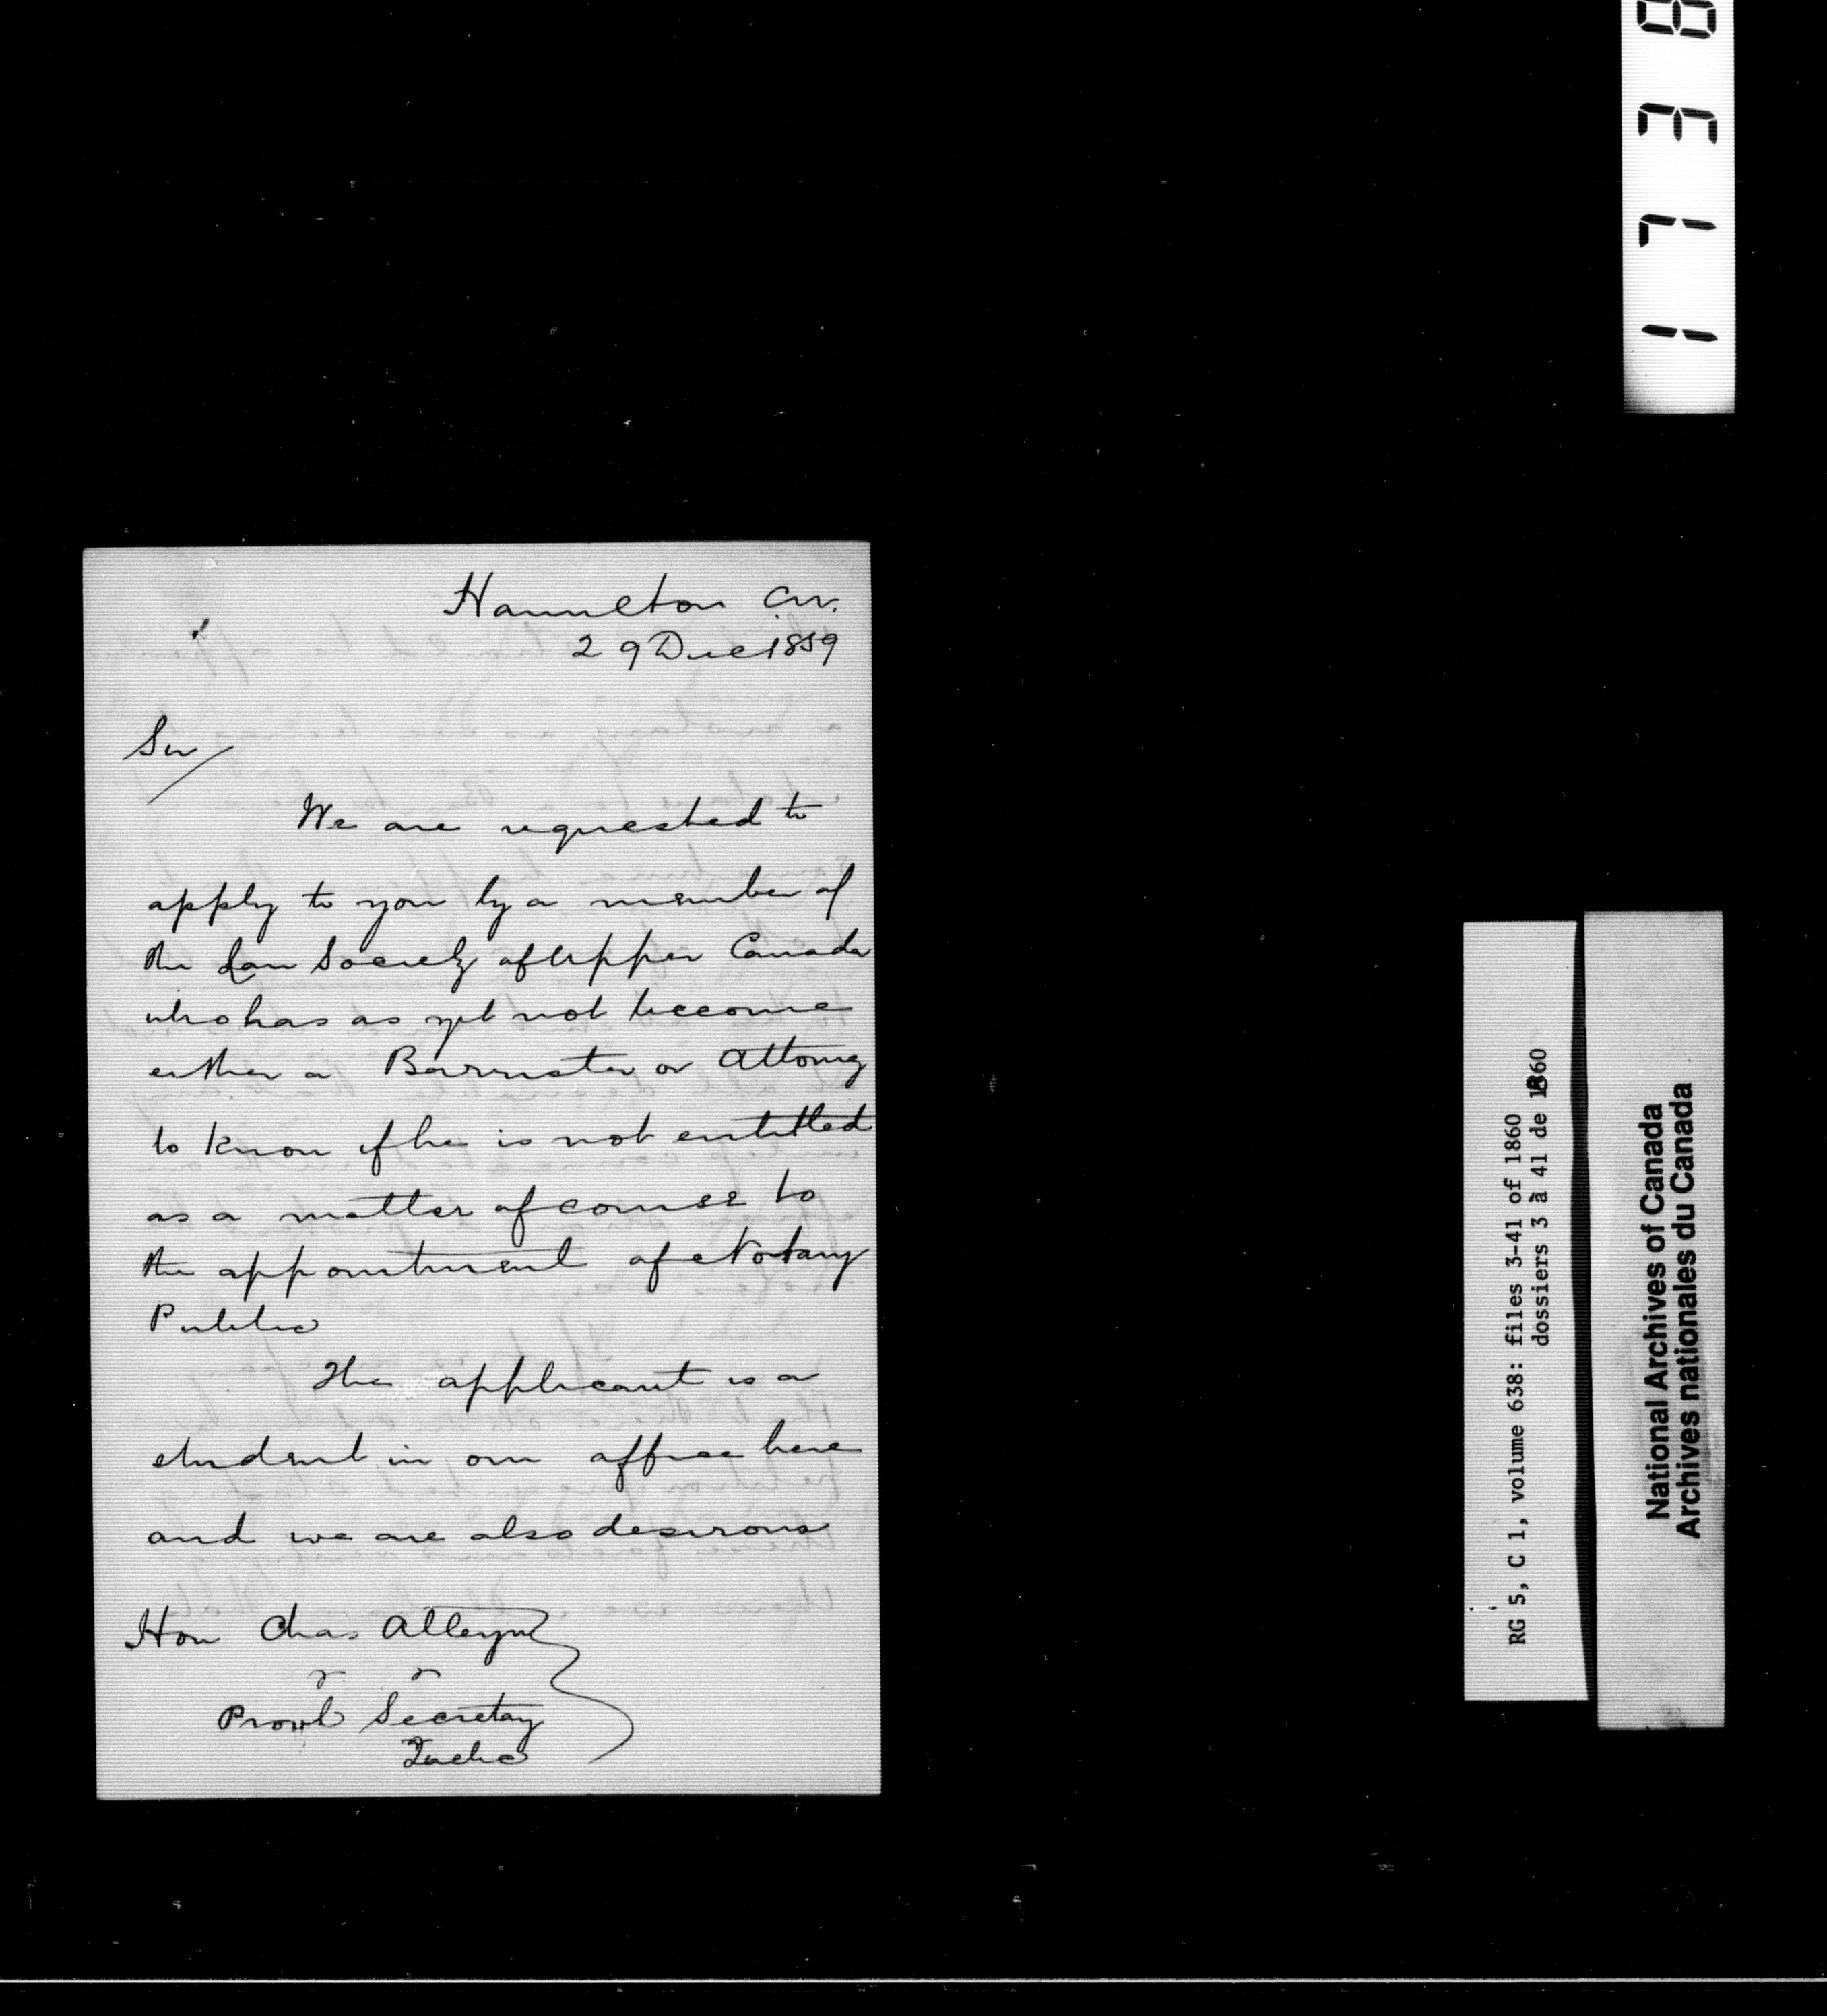 Hamilton C.W.
29 Dec 1859
Sir/
We are requested to
apply to you by a member of
the Law Society of Upper Canada
who has as yet not become
either a Barrister or Attorney
to know if he is not entitled
as a matter of course to
the appointment of Notary
Public
The applicant is a
student in our office here
and we are also desirous
Hon Chas Alleyn
Provl Secretary
Quebec
1738
RG 5, C 1, volume 638: files 3-41 of 1860
dossiers 3 à 41 de 1860
National Archives of Canada
Archives nationales du Canada